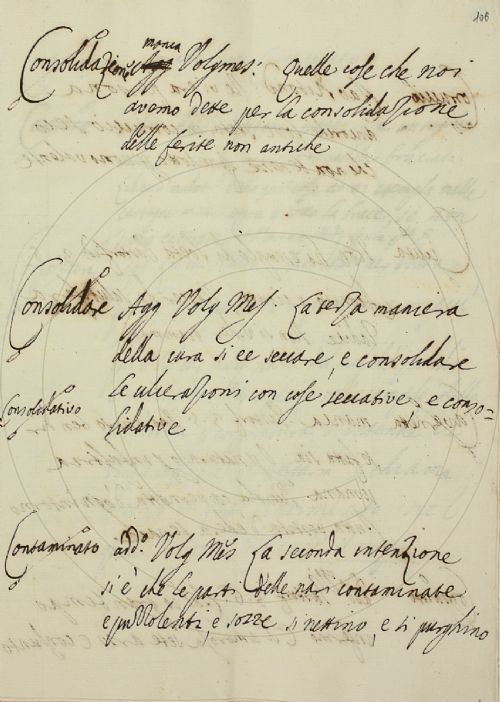 106
manca
Consolidazione Agg Volg mes: Quelle cose che noi
avemo dette per la consolidazione
delle ferite non antiche
Consolidare Agg Volg Mes. La terza maniera
della cura si ee seccare, e consolidare
le ulcerazioni con cose seccative, e conso-
Consolidativo
lidative
Contaminato add.º Volg Mes La seconda intenzione
si è che le parti delle nari contaminate
e puzzolenti, e sozze si nettino, e si purghino